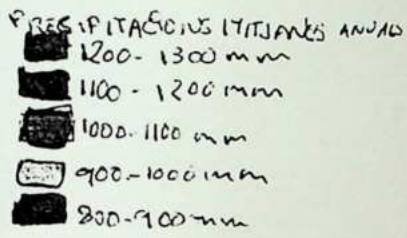 PRECIPITACIONS MITJANES ANUALS
1200 - 1300 mm
1100 - 1200 mm
1000 - 1100 mm
900 - 1000 mm
800 - 900 mm